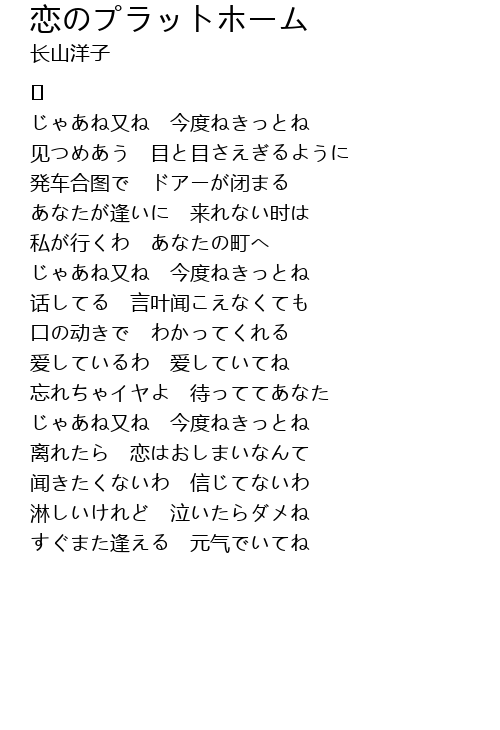 恋のプラットホーム
长山洋子
[]
じゃあね又ね　今度ねきっとね
见つめあう　目と目さえぎるように
発车合图で　ドアーが闭まる
あなたが逢いに　来れない时は
私が行くわ　あなたの町へ
じゃあね又ね　今度ねきっとね
话してる　言叶闻こえなくても
口の动きで　わかってくれる
爱しているわ　爱していてね
忘れちゃイヤよ　待っててあなた
じゃあね又ね　今度ねきっとね
离れたら　恋はおしまいなんて
闻きたくないわ　信じてないわ
淋しいけれど　泣いたらダメね
すぐまた逢える　元气でいてね